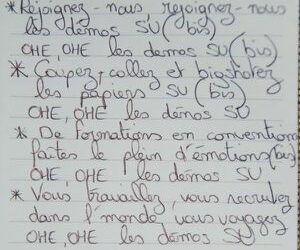 * Rejoignez-nous, rejoignez-nous
les démos SU (bis)
OHE, OHE les demos SU (bis)
* Coupez-collez et bigshotez
les papiers SU (bis)
OHE, OHE les démos SU
* De formations en convention
faites le plein d'émotions (bis)
OHE, OHE les demos SU
* Vous travaillez, vous recrutez
dans l'monde vous voyagez
OHE, OHE les démos SU